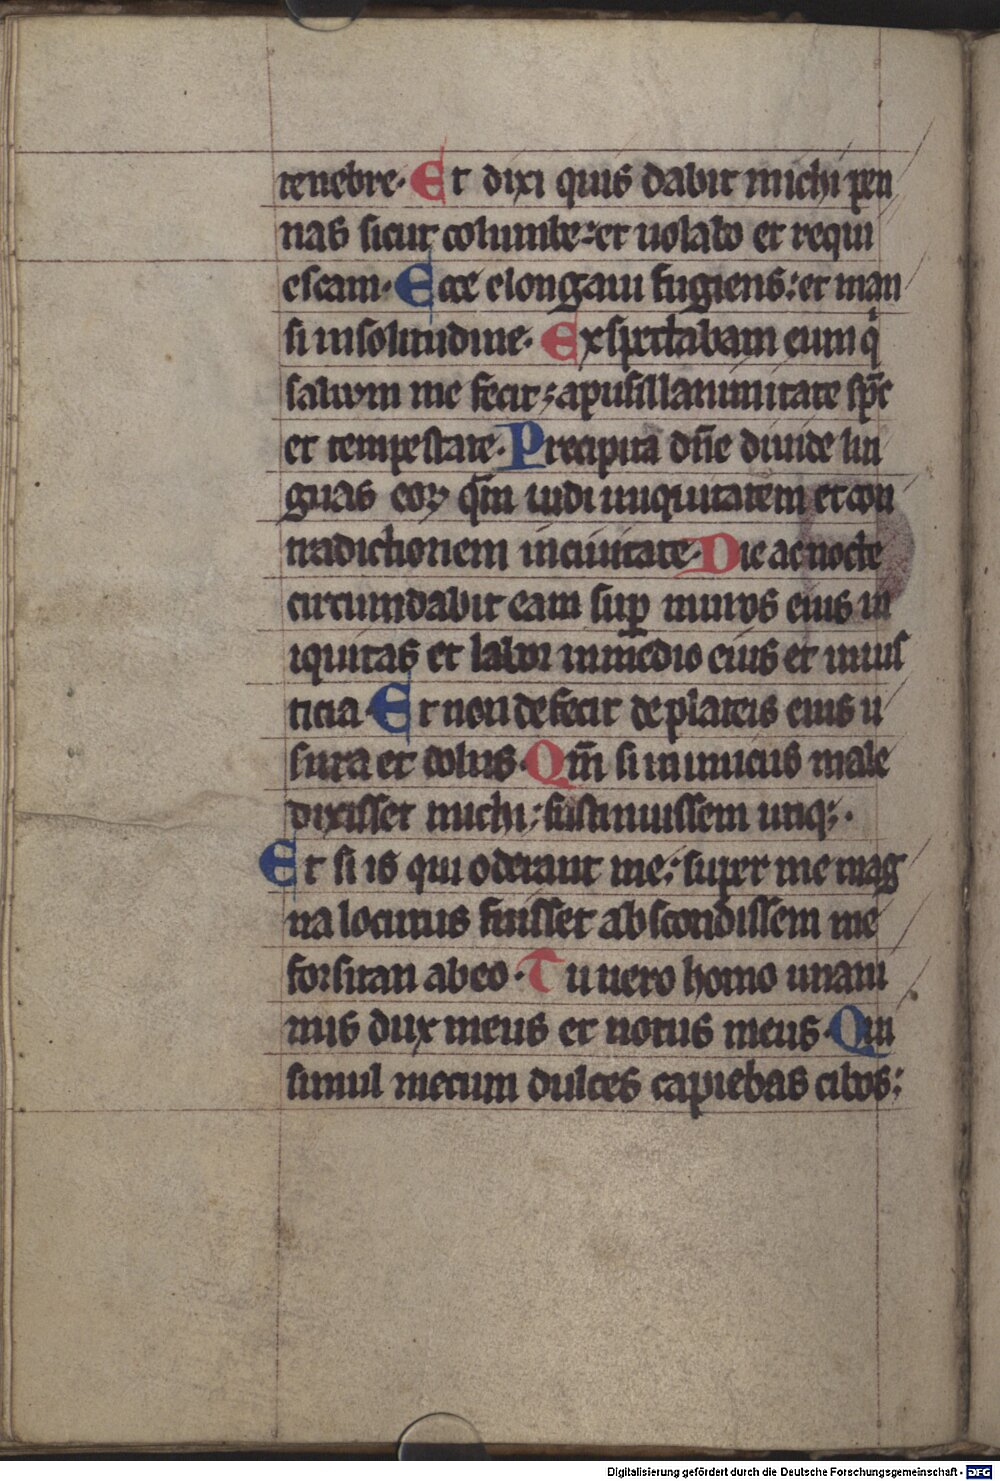 tenebre. Et dixi quis dabit michi pen
nas sicut columbe: et uolabo et requi
escam. Ecce elongaui fugiens: et man
si in solitudine. Exspectabam eum q̇
saluum me fecit: a pusillanimitate sp̄c
et tempestate. Precipita dn̄e diuide lin
guas eoꝝ qm̄ uidi iniquitatem et con
tradictionem in ciuitate. Die ac nocte
circumdabit eam suꝑ muros eius in
iquitas et labor in medio eius et inius
ticia. Et non defecit de plateis eius u
sura et dolus. Qm̄ si inimicus male
dixisset michi: sustinuissem utiqꝫ.
Et si is qui oderant me: super me mag
na locutus fuisset abscondissem me
forsitan ab eo. Tu uero homo unani
mis dux meus et notus meus. Qui
simul mecum dulces capiebas cibos:
Digitalisierung gefördert durch die Deutsche Forschungsgemeinschaft - DFG